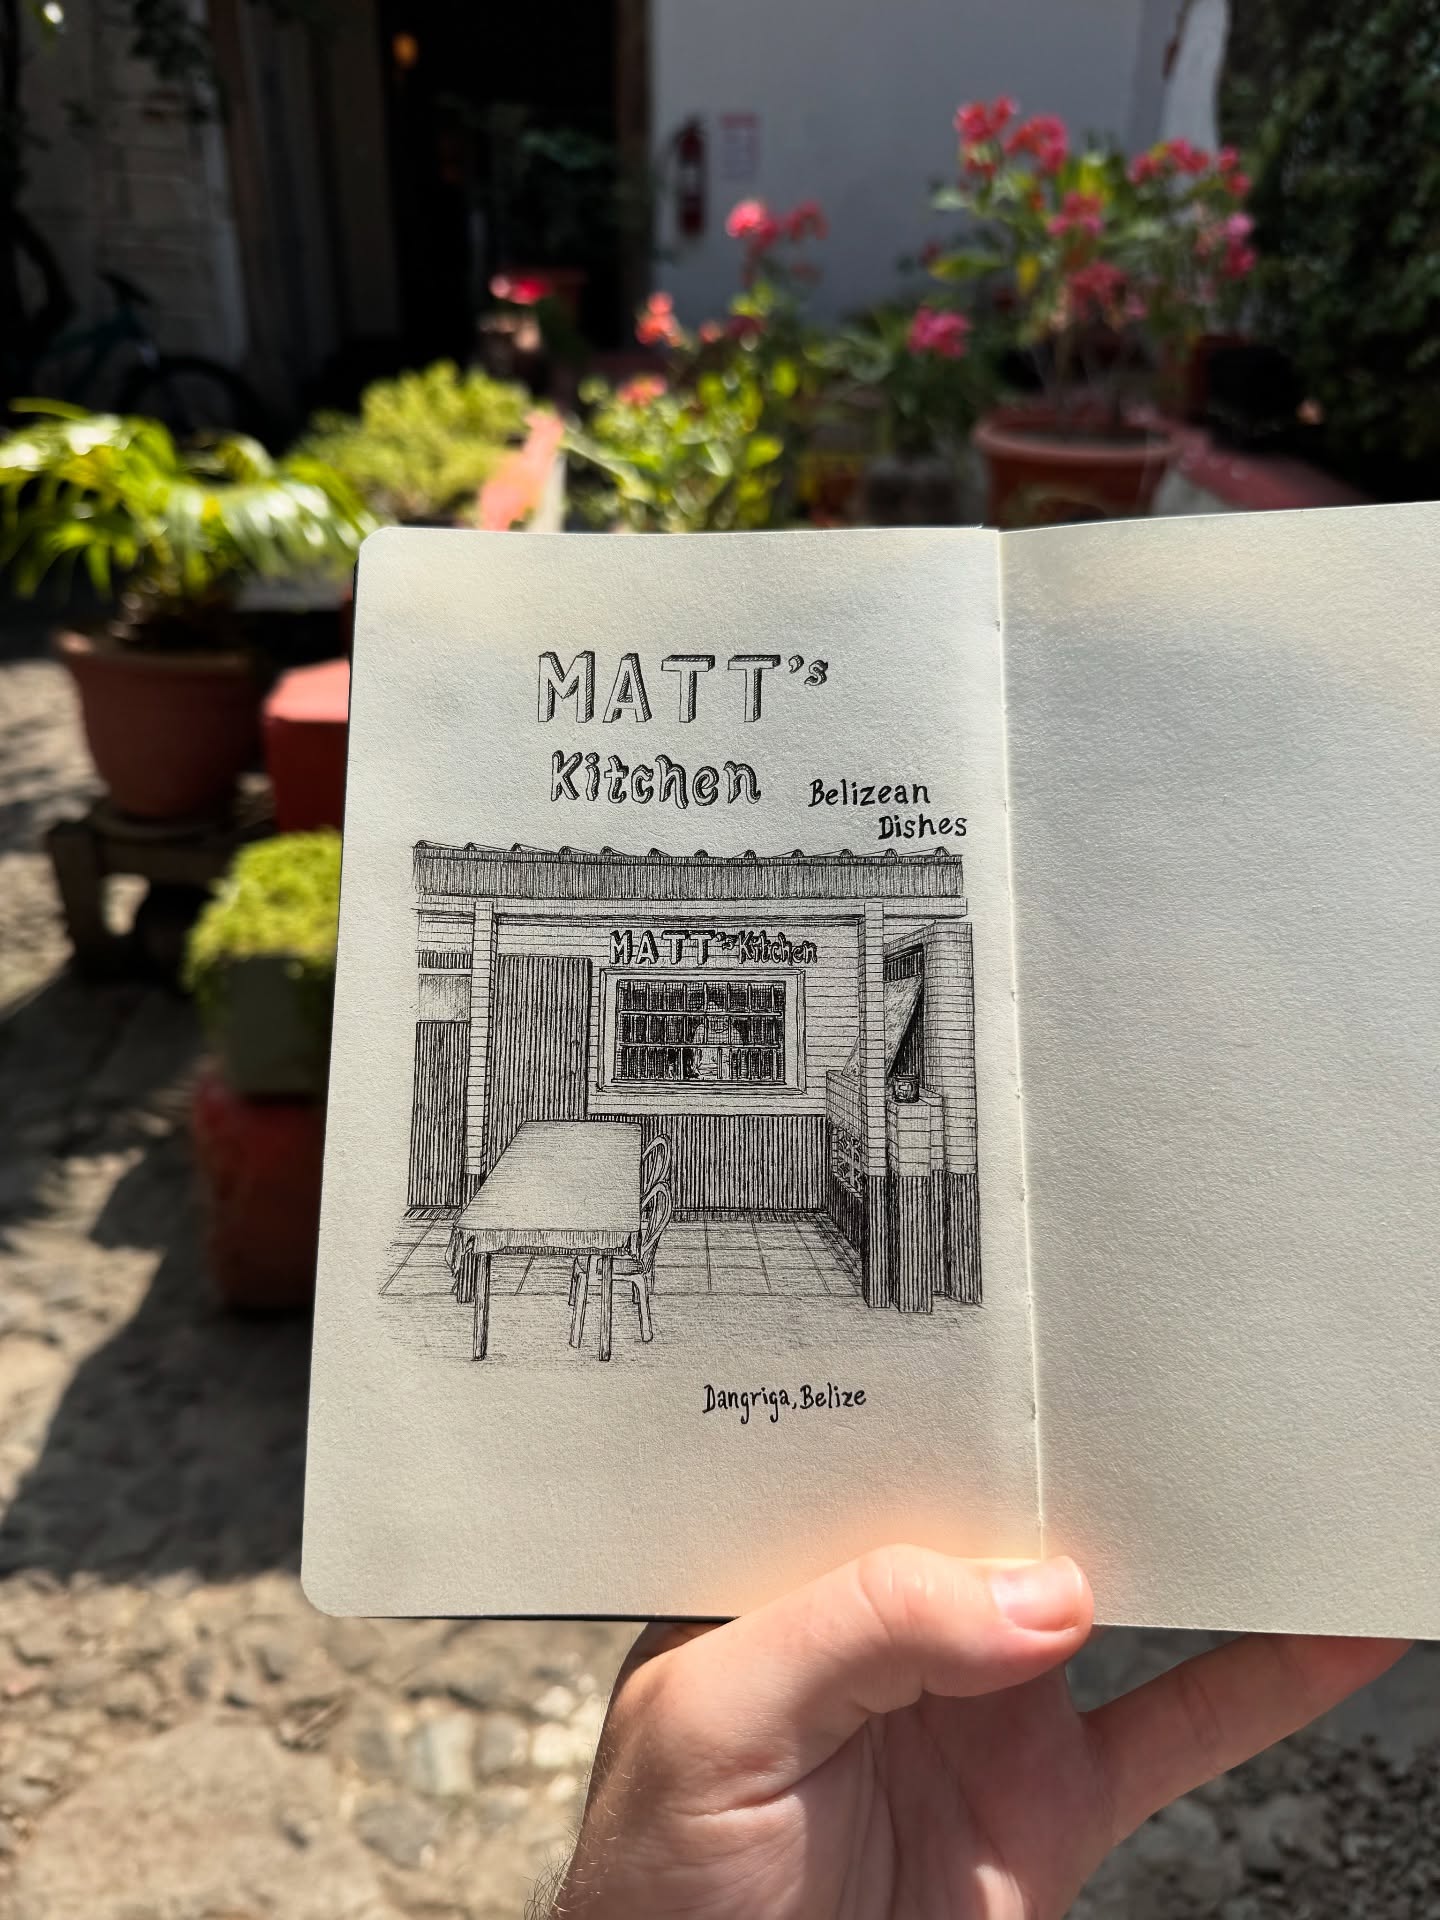 MATT's
Kitchen
Belizean
Dishes
MATT's Kitchen
Dangriga, Belize